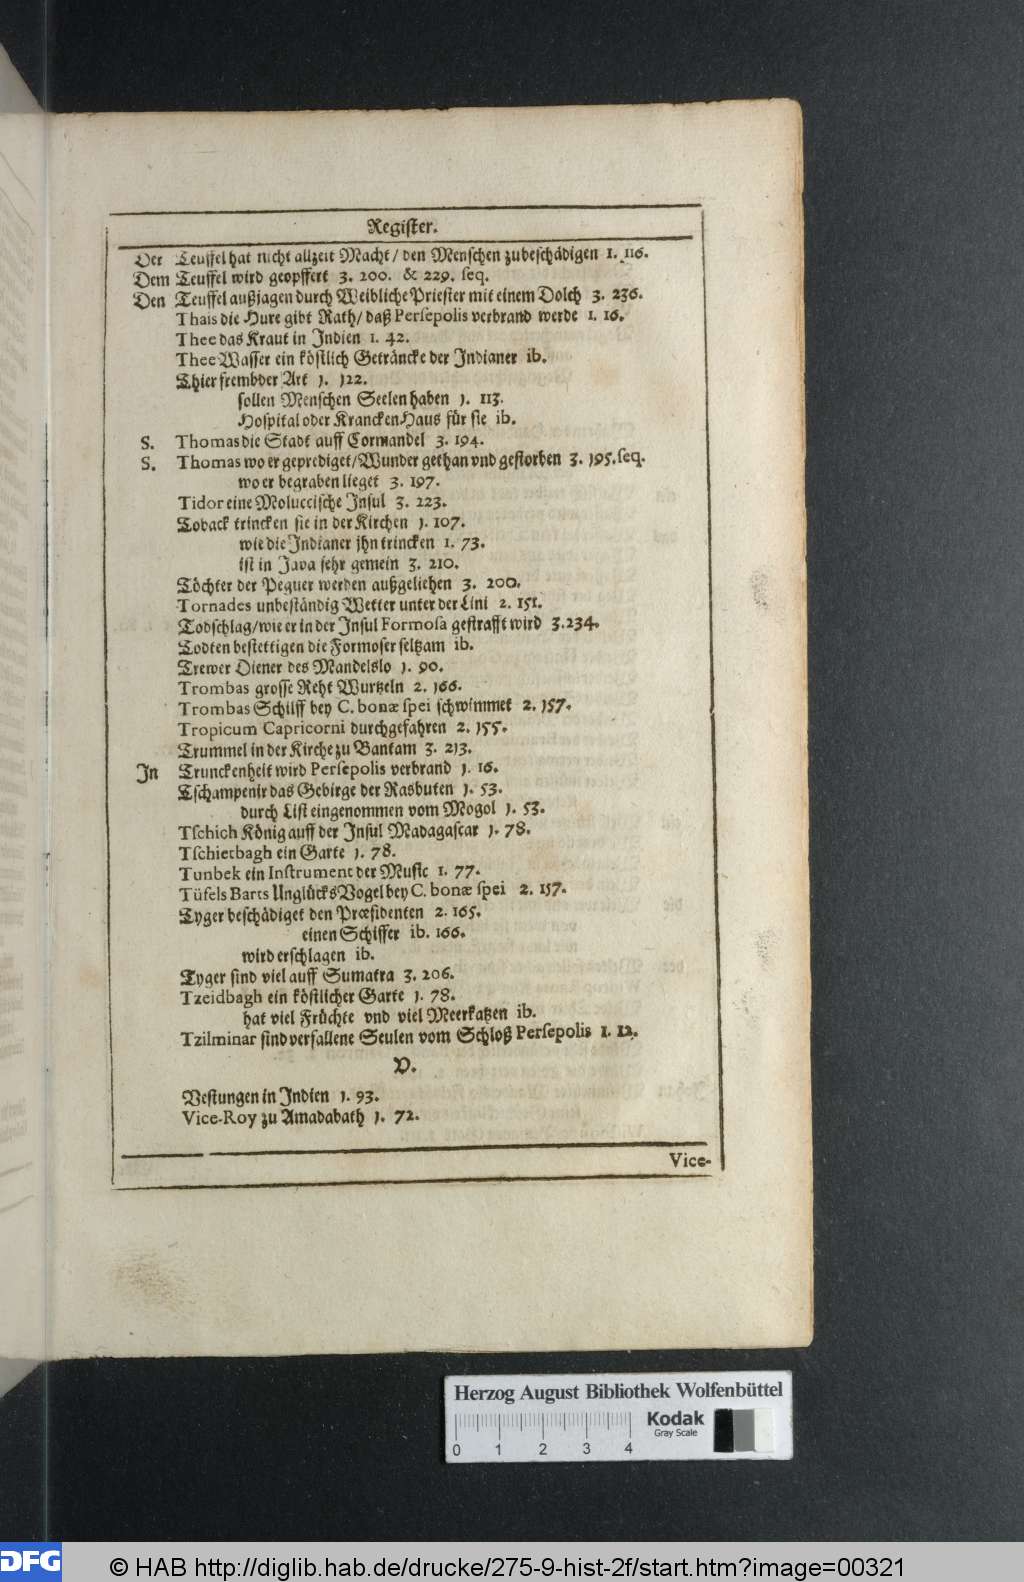 Register.
Der Teuffel hat nicht allzeit Macht / den Menschen zubeschädigen 1. 116.
Dem Teuffel wird geopffert 3. 200. & 229. seq.
Den Teuffel außjagen durch Weibliche Priester mit einem Dolch 3. 236.
Thais die Hure gibt Rath / daß Persepolis verbrand werde 1. 16.
Thee das Kraut in Indien 1. 42.
Thee Wasser ein köstlich Geträncke der Indianer ib.
Thier frembder Art 1. 122.
sollen Menschen Seelen haben 1. 113.
Hospital oder KranckenHaus für sie ib.
S. Thomas die Stadt auff Cormandel 3. 194.
S. Thomas wo er geprediget / Wunder gethan vnd gestorben 3. 195. seq.
wo er begraben lieget 3. 197.
Tidor eine Moluccische Insul 3. 223.
Toback trincken sie in der Kirchen 1. 107.
wie die Indianer jhn trincken 1. 73.
ist in Java sehr gemein 3. 210.
Töchter der Peguer werden außgeliehen 3. 200.
Tornades unbeständig Wetter unter der Lini 2. 151.
Todschlag / wie er in der Insul Formosa gestrafft wird 3. 234.
Todten bestettigen die Formoser seltzam ib.
Trewer Diener des Mandelslo 1. 90.
Trombas grosse Reht Wurtzeln 2. 166.
Trombas Schilff bey C. bonæ spei schwimmet 2. 157.
Tropicum Capricorni durchgefahren 2. 155.
Trummel in der Kirche zu Bantam 3. 213.
In Trunckenheit wird Persepolis verbrand 1. 16.
Tschampenir das Gebirge der Rasbuten 1. 53.
durch List eingenommen vom Mogol 1. 53.
Tschich König auff der Insul Madagascar 1. 78.
Tschietbagh ein Garte 1. 78.
Tunbek ein Instrument der Music 1. 77.
Tüfels Barts UnglücksVogel bey C. bonæ spei 2. 157.
Tyger beschädiget den Præsidenten 2. 165.
einen Schiffer ib. 166.
wird erschlagen ib.
Tyger sind viel auff Sumatra 3. 206.
Tzeidbagh ein köstlicher Garte 1. 78.
hat viel Früchte vnd viel Meerkatzen ib.
Tzilminar sind verfallene Seulen vom Schloß Persepolis 1. 12.
V.
Vestungen in Indien 1. 93.
Vice-Roy zu Amadabath 1. 72.
Vice-
Herzog August Bibliothek Wolfenbüttel
Kodak
Gray Scale
0 1 2 3 4
DFG © HAB http://diglib.hab.de/drucke/275-9-hist-2f/start.htm?image=00321